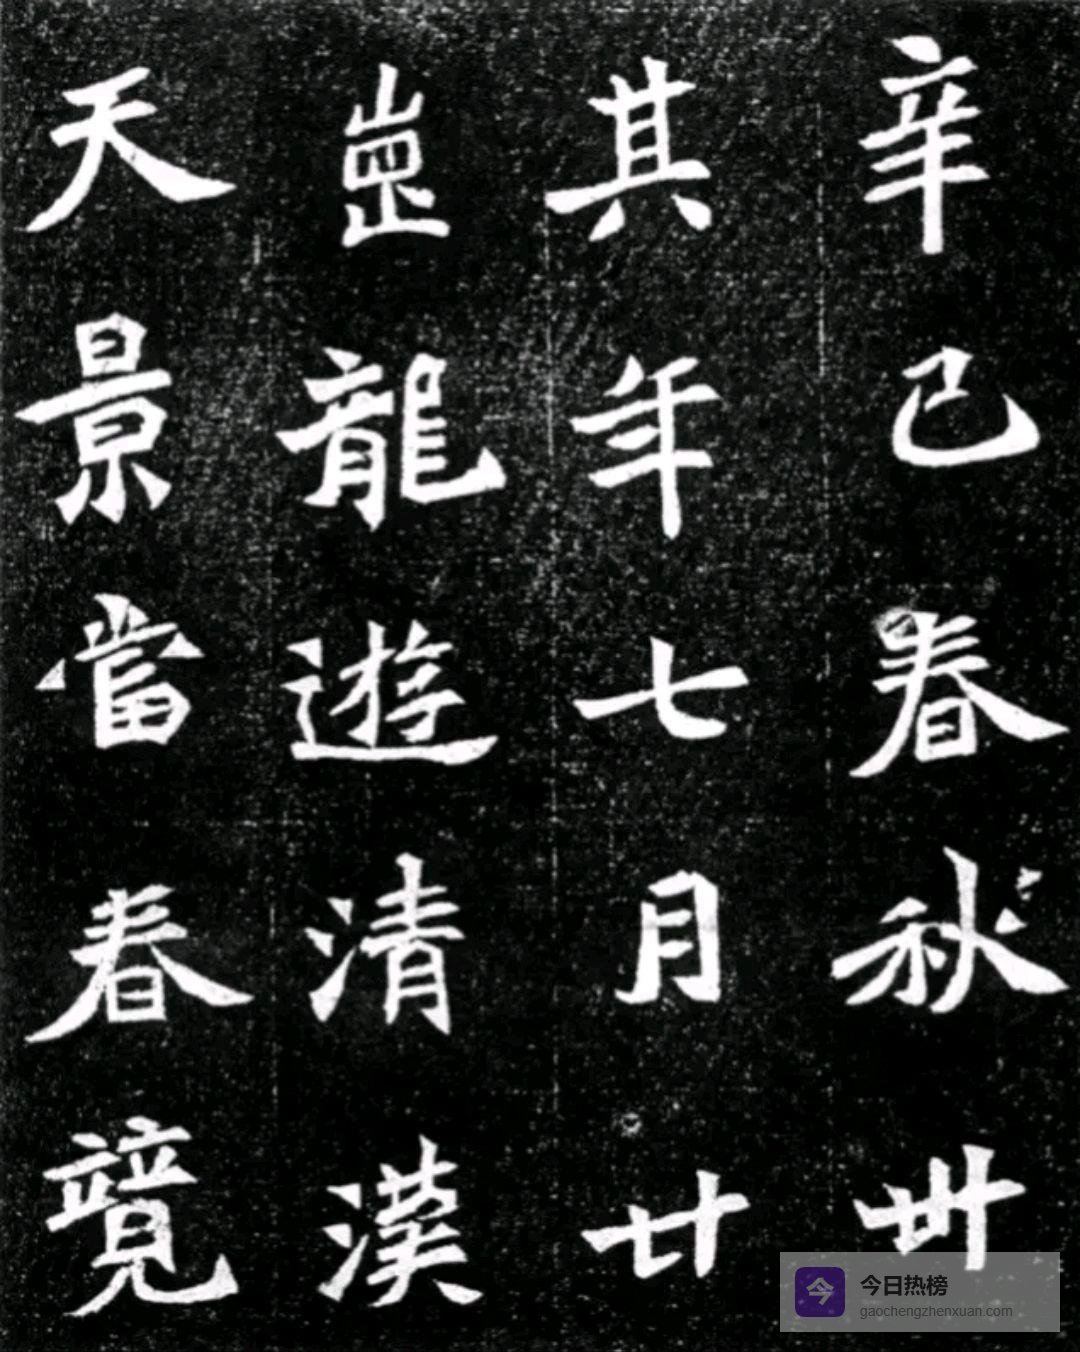 辛巳春秋卌
其年七月廿
龍遊清漢
天景當春竟
今日热榜
gaochengzhenxuan.com